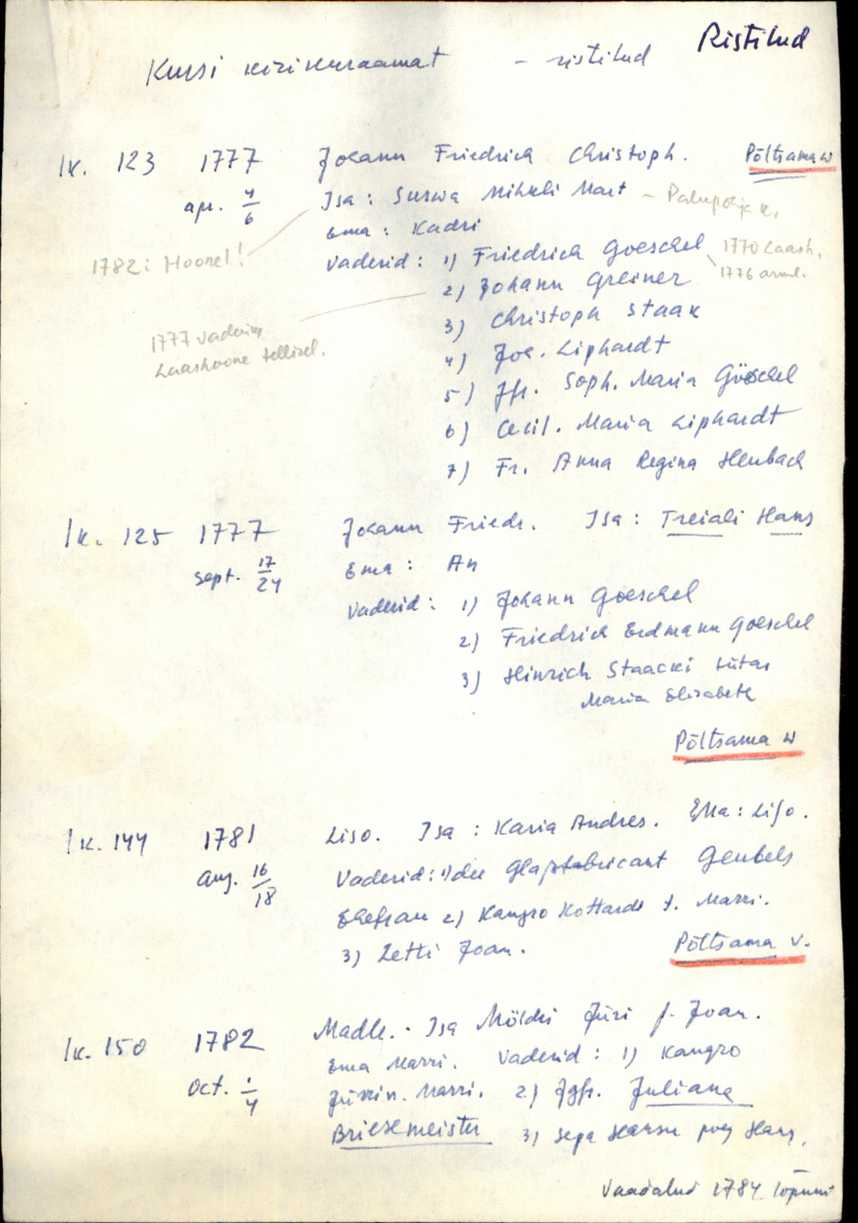 Ristitud
Kursi kirikuraamat - ristitud
lk. 123 1777 Johann Friedrich Christoph. Põltsama W
apr. 4/6 Isa: Mihkli Mart - Palupõhja k.
Ema: Kadri
1782: Hoonel!
Vaderid: 1) Friedrich Goeschel 1770 Laash.
1776
2) Johann Greiner
3) Christoph Staak
1777
4) Joh. Liphardt
5) Jfr. Soph. Maria Göschel
6) Cecil. Maria Liphardt
7) Fr. Anna Regina Heubach
lk. 125 1777 Johann Friedr. Isa: Treiali Hans
sept. 17/24 Ema: An
Vaderid: 1) Johann Goeschel
2) Friedrich Erdmann Goeschel
3) Hinrich Staacki tütar
Maria Elisabeth
Põltsama W
lk. 144 1781 Liso. Isa: Karia Andres. Ema: Liso.
aug. 16/18 Vaderid: 1) der Glassfabricant Geubels
Ehefrau 2) Kangro t. Marri.
3) Letti Joan.
Põltsama V.
lk. 150 1782 Madle. Isa Möldri Jüri p. Joan.
oct. 1/4 Ema Marri. Vaderid: 1) Kangro
Marri. 2) Jgfr. Juliana
Briesemeister 3) Sepa Hansu poeg Hans.
Vaadatud 1784 lõpuni